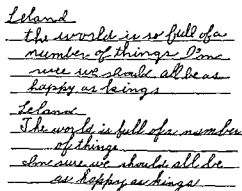 Leland
the world is so full of a
number of things I'm
sure we should all be as
happy as kings
Leland
The world is full of a number
of things
I'm sure we should all be
as happy as kings